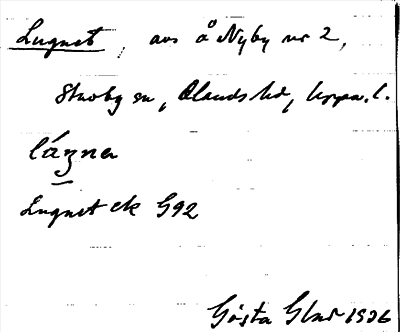 Lugnet, avs å Nyby nr 2,
Skuoby sn, Olands hd, Uppsa. l.
Lugnet ek G92
Gösta 1936